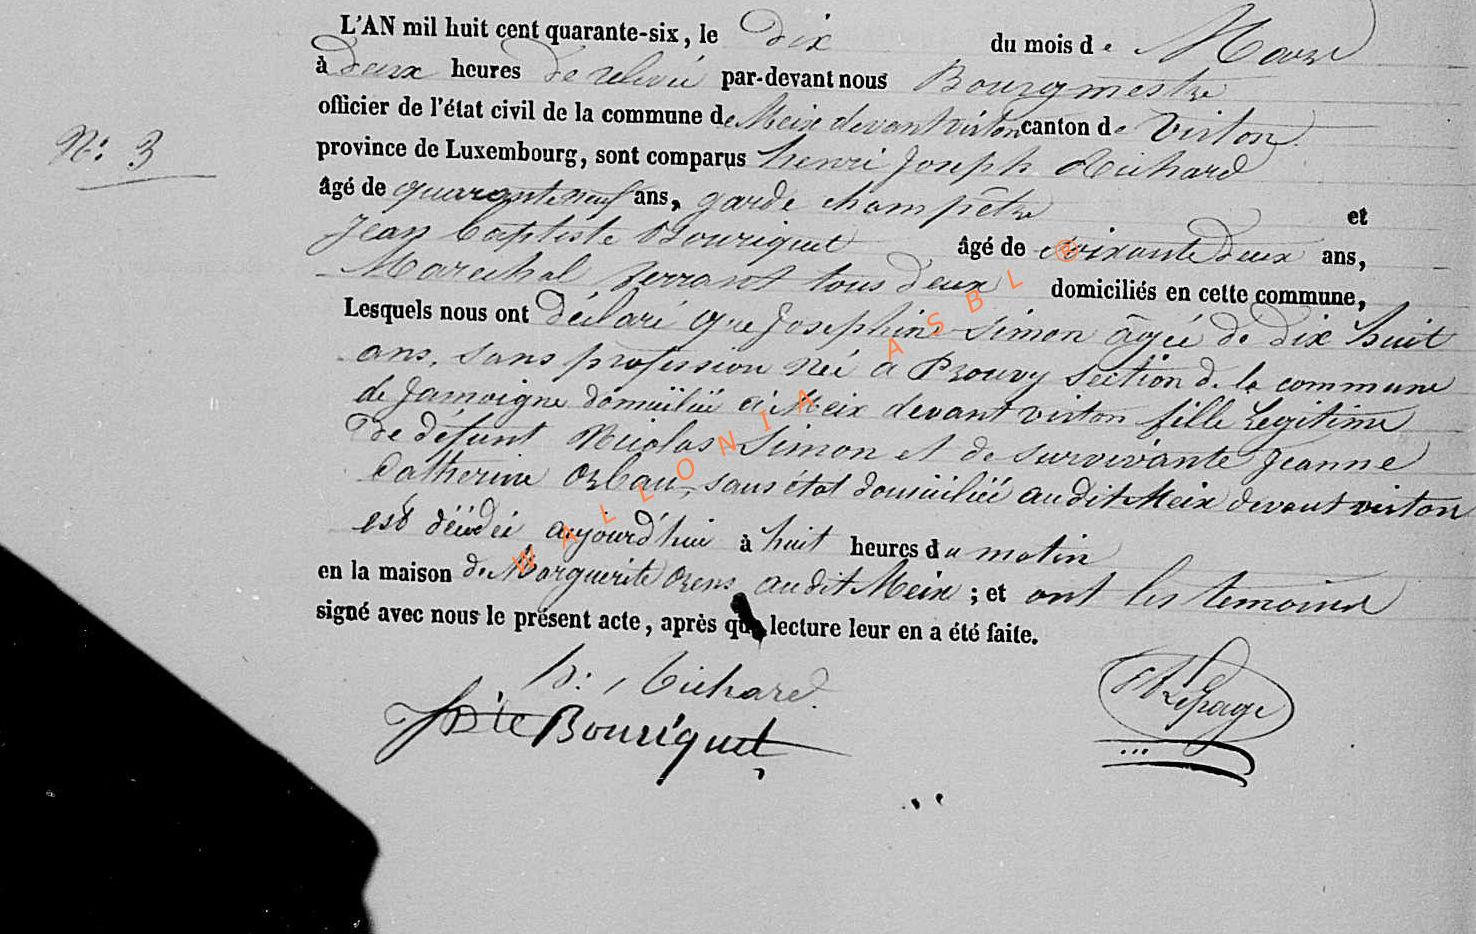 L'AN mil huit cent quarante-six, le dix du mois de Mars
à deux heures de relevée par-devant nous Bourgmestre
officier de l'état civil de la commune de Meix devant virton canton de Virton
province de Luxembourg, sont comparus henri Joseph Richard
N.° 3
âgé de quarante neuf ans, garde champêtre et
Jean Baptiste Bouriquet âgé de soixante deux ans,
Marechal ferrant tous deux domiciliés en cette commune,
Lesquels nous ont déclaré que Josephine Simon âgée de dix huit
ans, sans profession née à Prouvy section de la commune
de Jamoigne domiciliée à Meix devant virton fille legitime
De défunt Nicolas Simon et de survivante Jeanne
Catherine Orban, sans état domiciliée audit Meix devant virton
est décédée aujourd'hui à huit heures du matin
en la maison de Marguerite audit Meix ; et ont les temoins
signé avec nous le présent acte, après que lecture leur en a été faite.
h: j Richard
JBte Bouriquet
Lepage
WALLONIA ASBL ®